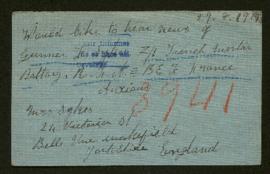 29. 8. 19
Would like to hear news of
Gunner
Z/9 Trench Mortar
Battery, R.F.A. B.E.F. France
Anxious
8941
Mrs Sykes
24 Victoria St
Belle Vue Wakefield
Yorkshire England